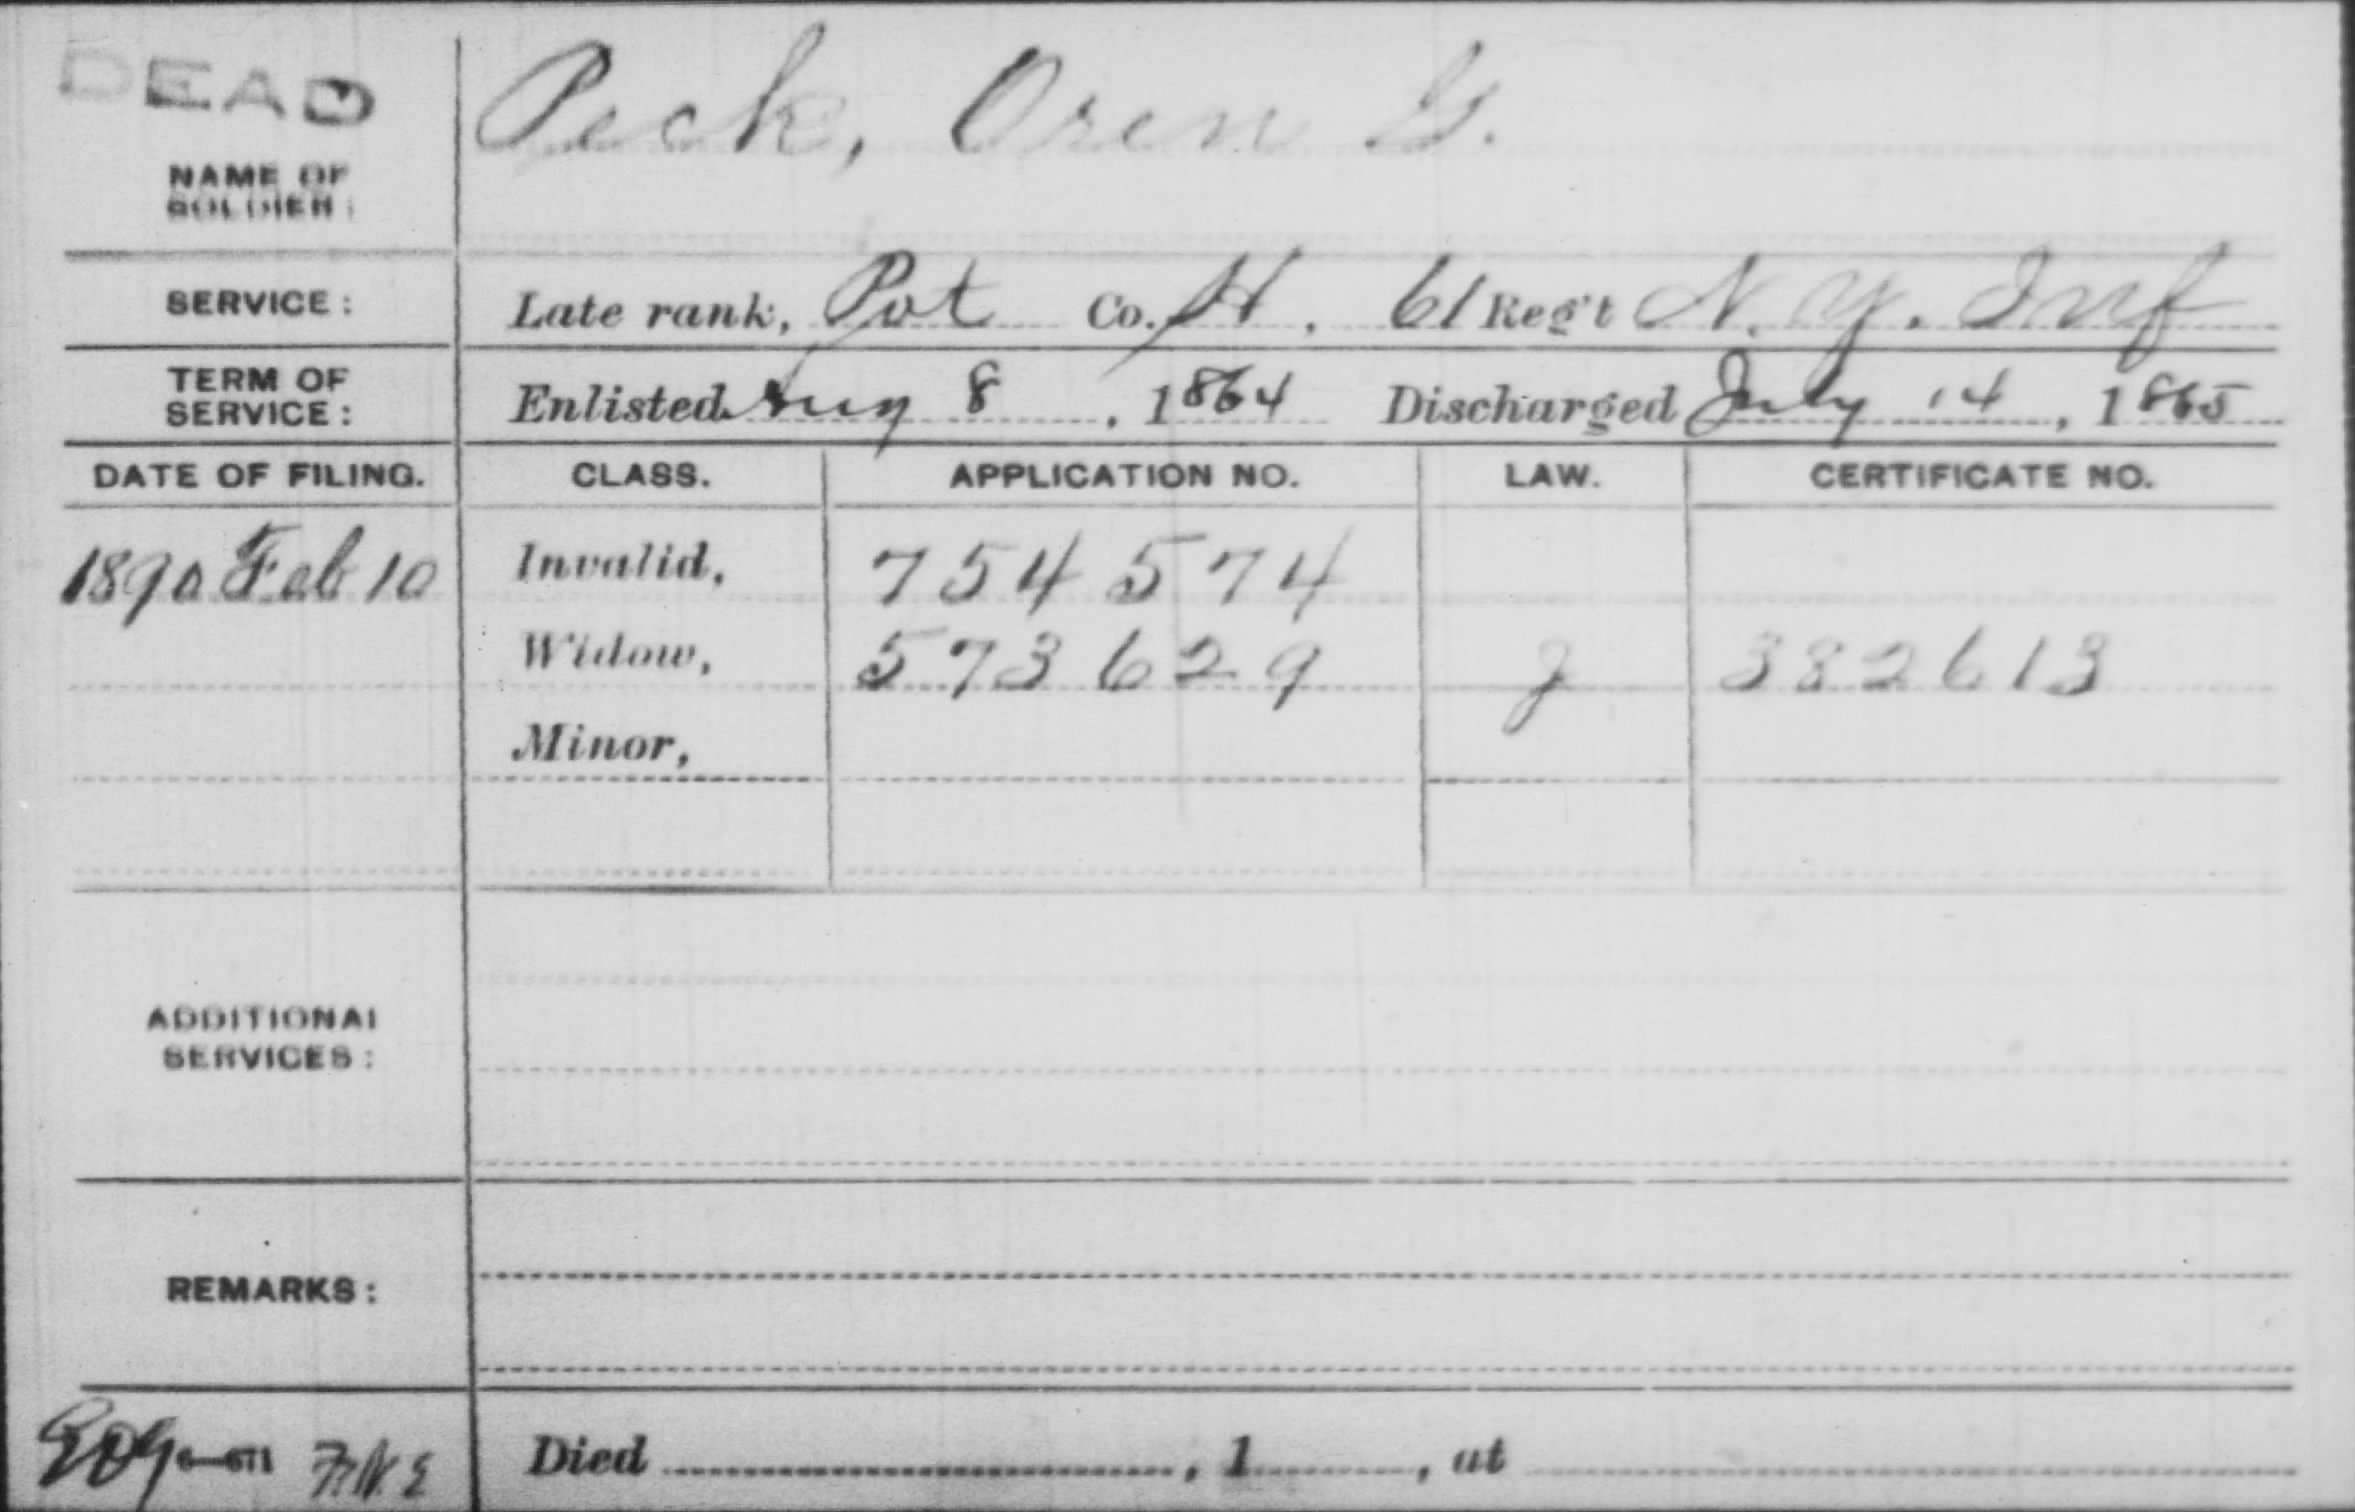 DEAD
NAME OF SOLDIER: Peck, Oren G.
SERVICE: Late rank, Pvt Co. H, 61 Reg't N.Y. Inf
TERM OF SERVICE: Enlisted Aug 8, 1864 Discharged July 14, 1865
DATE OF FILING. CLASS. APPLICATION NO. LAW. CERTIFICATE NO.
1890 Feb 10 Invalid, 754 574
Widow, 573 629 382613
Minor,
ADDITIONAL SERVICES:
REMARKS:
Died , 1 , at